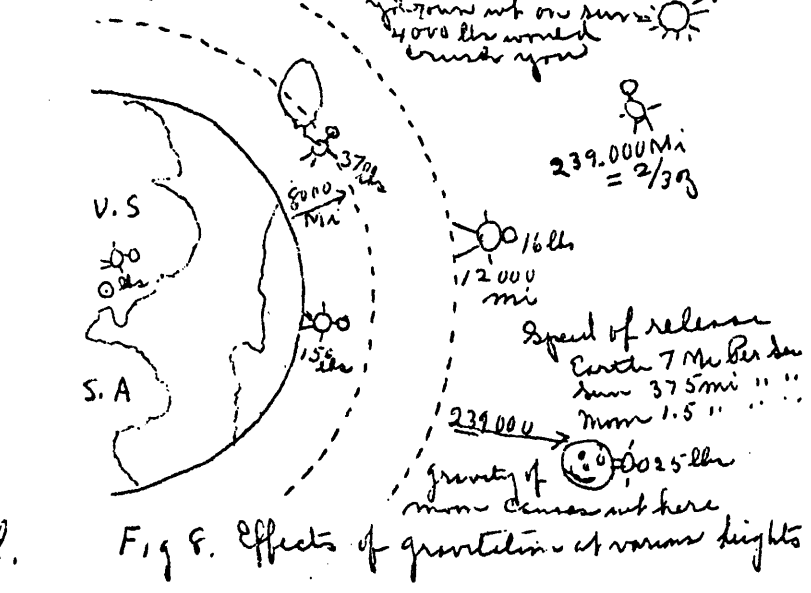 wt on sun
4000 lbs would
crush you
239.000 Mi
= 2/3 oz
37 lbs
8000
Mi
U.S
16 lbs
12000
mi
0 lbs
150
lbs
Speed of release
Earth 7 Mi Per Sec
Sun 375 mi " "
Moon 1.5 " " "
S.A
239000
025 lbs
gravity of
moon causes wt here
Fig 8. Effects of gravitation at various heights